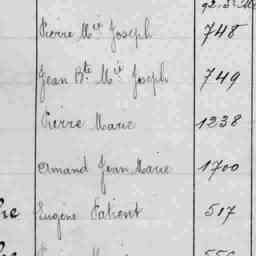 Pierre Mie Joseph 748
Jean Bte Mie Joseph 749
Pierre Marie 1238
Armand Jean Marie 1700
Eugène Patient 517